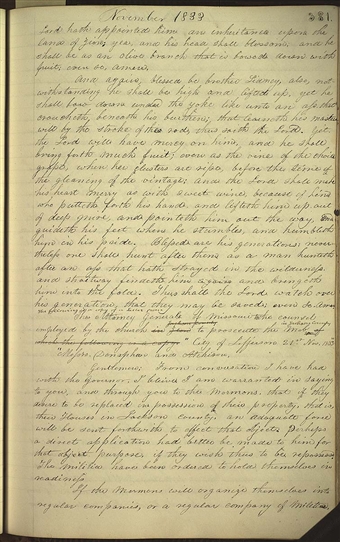 November 1833
331
Lord hath appointed him, an inheritance upon the
land of Zion, yea, and his head shall blossom, and he
shall be as an olive branch that is bowed down with
fruit, even so, amen.
And again, blessed be brother Sidney, also, not
withstanding he shall be high and lifted up, yet he
shall bow down under the yoke like unto an ass that
croucheth beneath his burthen; that learneth his master's
will by the stroke of the rod, thus saith the Lord. Yet
the Lord will have mercy on him, and he shall
bring forth much fruit; even as the vine of the choice
grape, when her clusters are ripe, before the time of
the gleaning of the vintage: and the Lord shall make
his heart merry as with sweet wine because of him
who putteth forth his hand and lifteth him up out
of deep mire, and pointeth him out the way, and
guideth his feet when he stumbles, and humbleth
him in his pride. Blessed are his generations, never-
theless one shall hunt after them as a man hunteth
after an ass that hath strayed in the wilderness
and straitway findeth him again and bringeth
him into the fold. Thus shall the Lord watch over
his generation, that they may be saved: even so Amen
The Attorney General of Missouri
the counsel
employed by the church to prosecute the Mob
which the following
"City of Jefferson 21st Nov. 1833
"Messrs. Doniphan and Atchison.
Gentlemen, From conversation I have had
with the Governor, I believe I am warranted in saying
to you, and through you to the Mormons, that if they
desire to be replaced in possession of their property, that is,
their Houses in Jackson County, an adequate force
will be sent forthwith to effect that object. Perhaps
a direct application had better be made to him for
that object purpose, if they wish thus to be repossessed.
The Militia have been ordered to hold themselves in
readiness.
If the Mormons will organize themselves into
regular companies, or a regular company of Militia